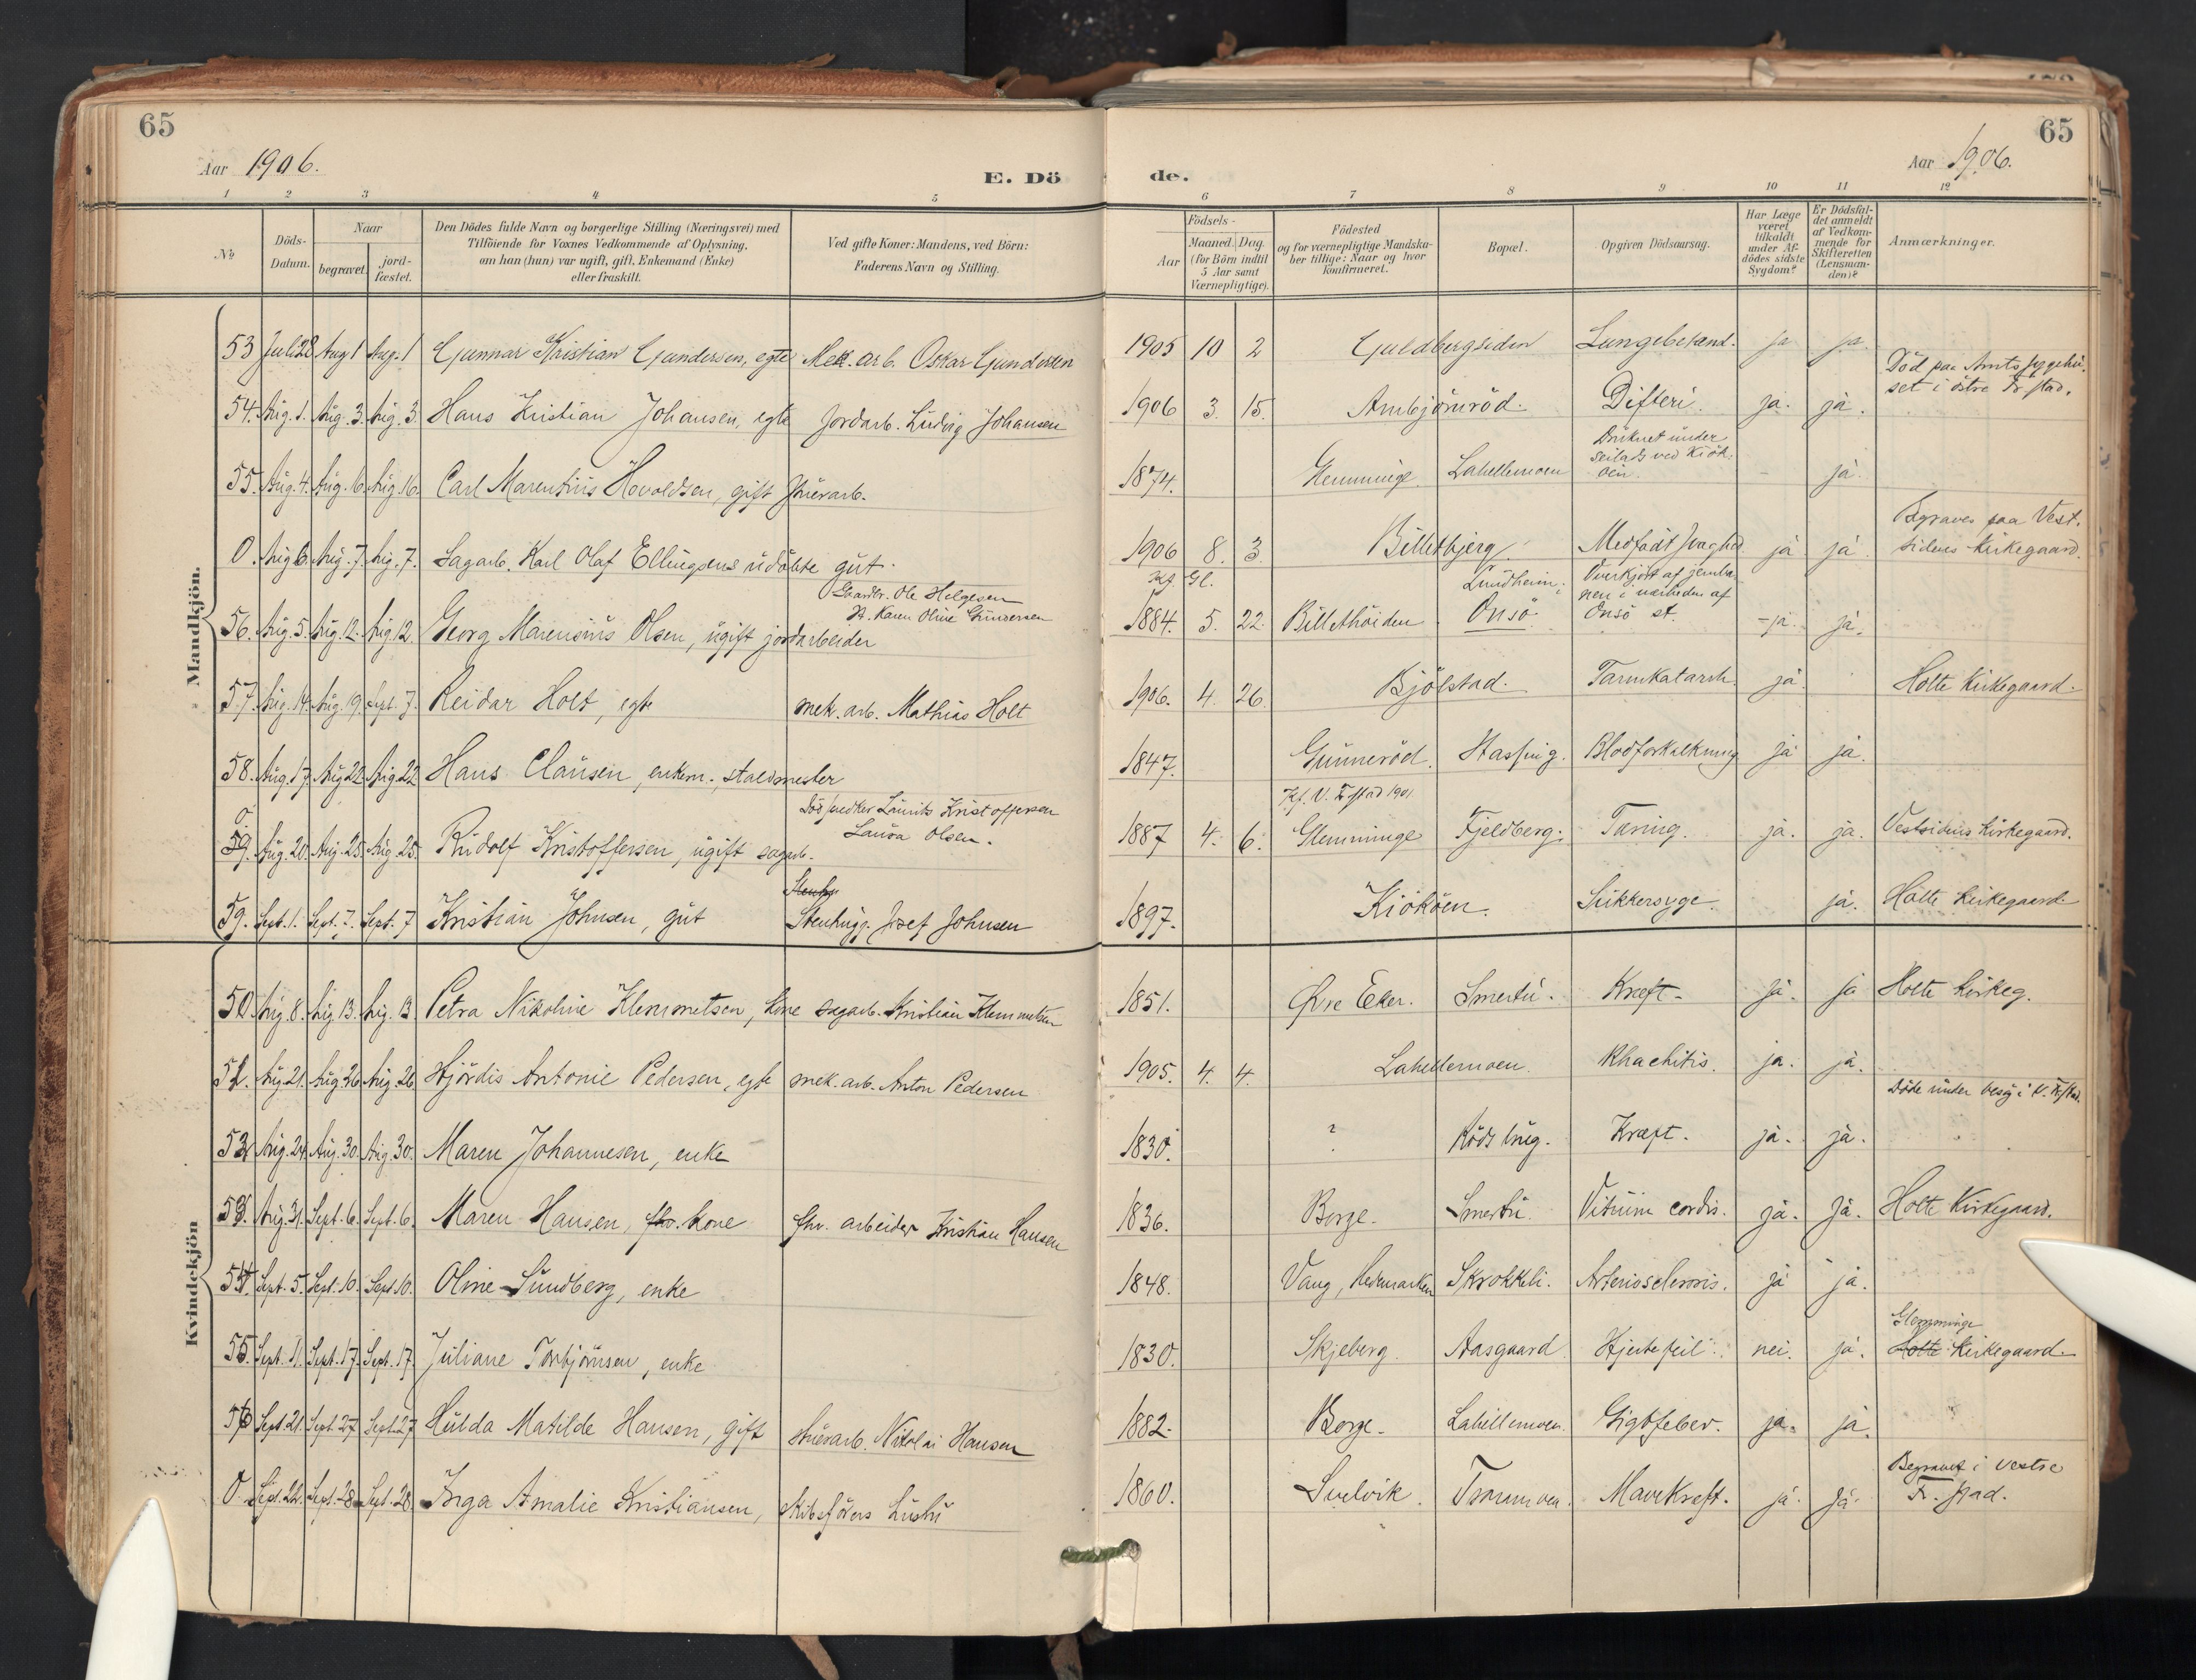 65
65
Aar 1906.
E. Dö
de.
Aar 1906.
1 2 3 4 5 6 7 8 9 10 11 12
No
Döds-Datum.
Naar
begravet.
jordfæstet.
Den Dödes fulde Navn og borgerlige Stilling (Næringsvei) med
Tilföiende for Voxnes Vedkommende af Oplysning,
om han (hun) var ugift, gift, Enkemand (Enke)
eller fraskilt.
Ved gifte Koner: Mandens, ved Börn:
Faderens Navn og Stilling.
Födsels-
Aar
Maaned. Dag.
(for Börn indtil
5 Aar samt
Værnepligtige).
Födested
og for værnepligtige Mandska-
ber tillige: Naar og hvor
konfirmeret.
Bopæl.
Opgiven Dödsaarsag.
Har Læge
været
tilkaldt
under Af-
dödes sidste
Sygdom?
Er Dödsfal-
det anmeldt
af Vedkom-
mende for
Skifteretten
(Lensman-
den)?
Anmærkninger.
Mandkjön.
53 Juli 28 Aug 1 Aug. 1 Gunnar Kristian Gundersen, egte Mek. arb. Oskar Gundersen 1905 10 2 Guldbergsiden Lungebetænd. ja ja.
54. Aug. 1. Aug. 3. Aug. 3. Hans Kristian Johansen, egte Jordarb. Ludvig Johansen 1906 3. 15. Ambjörnröd. Difteri. ja. ja. Död paa Amtssygehu-
set i östre Fr.stad.
55. Aug. 4. Aug. 16. Aug. 16. Carl Marentius Hovoldsen, gift Stuerarb. 1874. Glemminge. Lahellemoen Druknet under
seilads ved Kiök-
öen. - ja.
0. Aug 6. Aug. 7. Aug. 7. Sagarb. Karl Olaf Ellingsens udöbte gut. 1906 8. 3. Billetbjerg Medfödt Svaghed ja ja. Begraves paa Vest-
sidens Kirkegaard.
56. Aug. 5. Aug. 12. Aug 12. Georg Marensius Olsen, ugift jordarbeider Gaardbr. Ole Helgesen
H. Karen Oline Gundersen Kf. Gl.
1884. 5. 22. Billethöiden Lundheim,
Onsö Overkjört af jernba-
nen i nærheden af
Onsö st. - ja. ja.
57. Aug. 14. Aug. 19. Sept. 7. Reidar Holt, egte mek. arb. Mathias Holt 1906. 4. 26 Bjölstad. Tarmkatarrh. ja Holte Kirkegaard.
58. Aug. 17. Aug 22 Aug. 22 Hans Clausen, enkem., staldmester 1847. Gunneröd. Hassing. Blodforkalkning ja ja.
0
59. Aug. 20. Aug. 25. Aug. 25. Rudolf Kristoffersen, ugift sagarb. Död snedker Laurits Kristoffersen
Laura Olsen. Kf. V. Fr.stad 1901
1887 4. 6. Glemminge Fjeldberg. Tæring. ja. ja. Vestsidens Kirkegaard.
59. Sept. 1. Sept. 7. Sept. 7 Kristian Johnsen, gut Stenhug. Josef Johnsen 1897. Kiököen. Sukkersyge. ja. Holte Kirkegaard.
Kvindekjön
50. Aug. 8. Aug. 13. Aug. 13 Petra Nikoline Klemmetsen, kone sagarb. Kristian Klemmetsen 1851. Övre Eker. Smertu. Kræft. Ja. ja Holte Kirkeg.
51. Aug. 21. Aug. 26 Aug. 26 Hjördis Antonie Pedersen, egte mek. arb. Anton Pedersen 1905. 4. 4. Lahellemoen. Rhachitis. ja. ja.
52. Aug. 24. Aug. 30. Aug. 30. Maren Johannesen, enke 1830. ? Röds brug. Kræft. ja. ja. Döde under besög i V. Fr.stad.
53. Aug. 31. Sept. 6. Sept. 6. Maren Hansen, fhv. kone fhv. arbeider Kristian Hansen 1836. Borge. Smertu. Vitium cordis. ja. Ja. Holte Kirkegaard.
54. Sept. 5. Sept. 10. Sept 10. Oline Sundberg, enke 1848. Vang, Hedemarken Skrokkeli. Arteriosclerosis. ja ja.
55. Sept. 11. Sept. 17. Sept. 17. Juliane Torbjörnsen, enke 1830. Skjeberg Aasgaard Hjertefeil. nei. ja. Glemminge
Holte Kirkegaard.
56 Sept. 21. Sept. 27 Sept. 27 Hulda Matilde Hansen, gift stuerarb. Nikolai Hansen 1882. Borge. Lahellemoen. Gigtfeber. ja. ja.
0. Sept. 22. Sept. 28 Sept. 28. Inga Amalie Kristiansen, skibsförers hustru 1860. Svelvik. Trommoen. Mavekræft. ja. Ja. Begravet i vestre
Fr.stad.